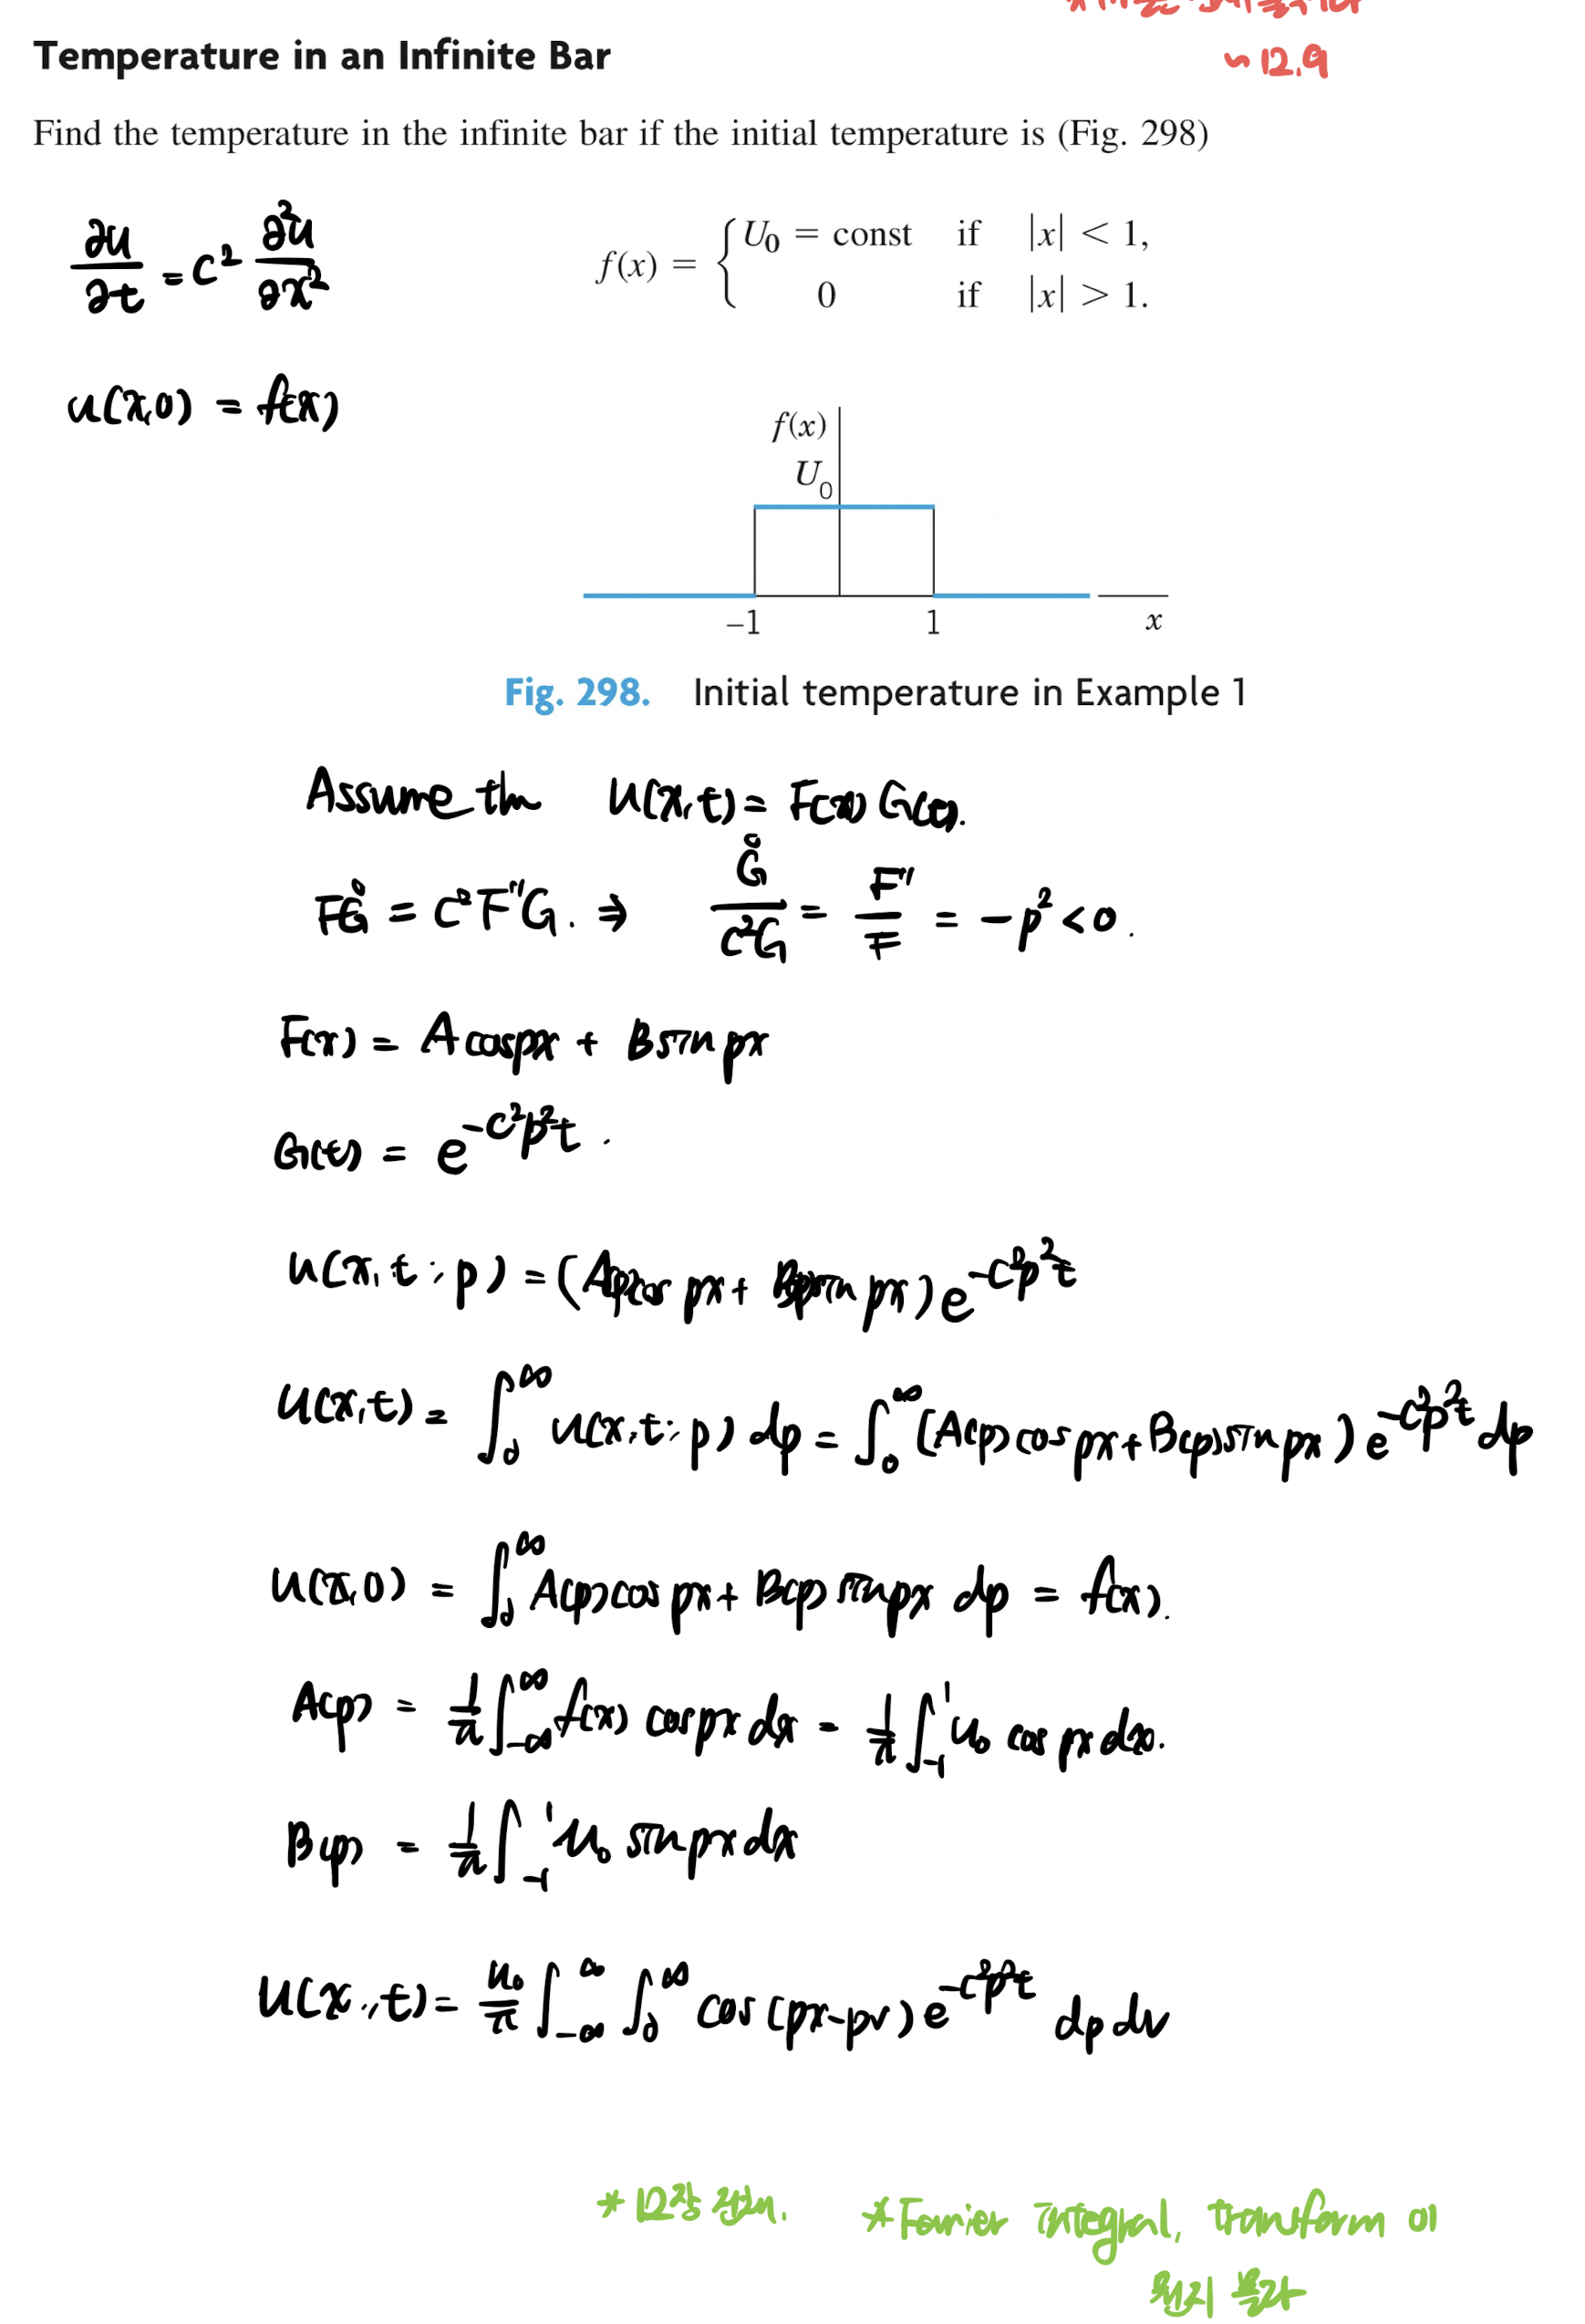 ~ 12.9
Temperature in an Infinite Bar
Find the temperature in the infinite bar if the initial temperature is (Fig. 298)
∂u/∂t = c² ∂²u/∂x²
f(x) = { U₀ = const if |x| < 1,
0 if |x| > 1.
u(x,0) = f(x)
f(x)
U₀
−1 1 x
Fig. 298. Initial temperature in Example 1
Assume the u(x,t) = F(x) G(t).
FĠ = c²F''G. ⇒ Ġ/c²G = F''/F = −p² < 0.
F(x) = A cos px + B sin px
G(t) = e^{−c²p²t}.
u(x,t;p) = (A(p)cos px + B(p)sin px) e^{−c²p²t}
u(x,t) = ∫₀^∞ u(x,t;p) dp = ∫₀^∞ (A(p) cos px + B(p) sin px) e^{−c²p²t} dp
u(x,0) = ∫₀^∞ A(p) cos px + B(p) sin px dp = f(x).
A(p) = 1/π ∫_{−∞}^∞ f(x) cos px dx = 1/π ∫_{−1}^1 u₀ cos px dx.
B(p) = 1/π ∫_{−1}^1 u₀ sin px dx
u(x,t) = u₀/π ∫_{−∞}^∞ ∫₀^∞ cos(px−pv) e^{−c²p²t} dp dv
* 12장 전체. * Fourier Integral, transform 이
뭔지 몰라